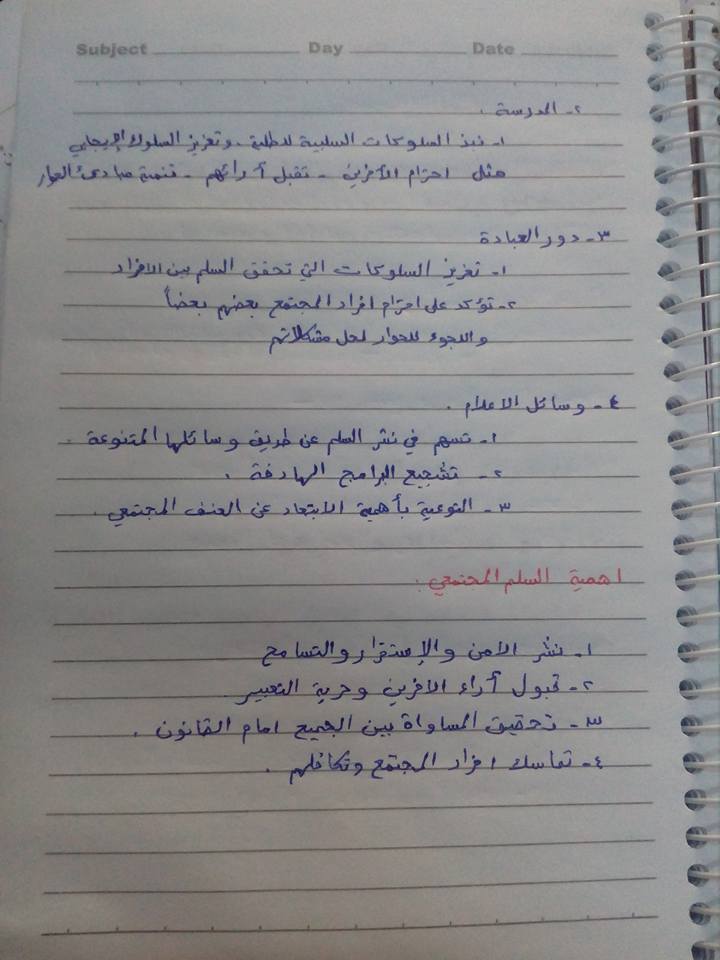 Subject Day Date
٢- المدرسة .
١- نبذ السلوكات السلبية للطلبة . وتعزيز السلوك الإيجابي
مثل احترام الآخرين - تقبل أرائهم - تنمية مبادئ الحوار
٣- دور العبادة
١- تعزيز السلوكات التي تحقق السلم بين الافراد
٢- تؤكد على احترام افراد المجتمع بعضهم بعضاً
واللجوء للحوار لحل مشكلاتهم
٤- وسائل الاعلام .
١- تسهم في نشر السلم عن طريق وسائلها المتنوعة .
٢- تشجيع البرامج الهادفة .
٣- التوعية بأهمية الابتعاد عن العنف المجتمعي .
اهمية السلم المجتمعي :
١- نشر الأمن والإستقرار والتسامح
٢- قبول أراء الآخرين وحرية التعبير
٣- تحقيق المساواة بين الجميع امام القانون .
٤- تماسك افراد المجتمع وتكافلهم .